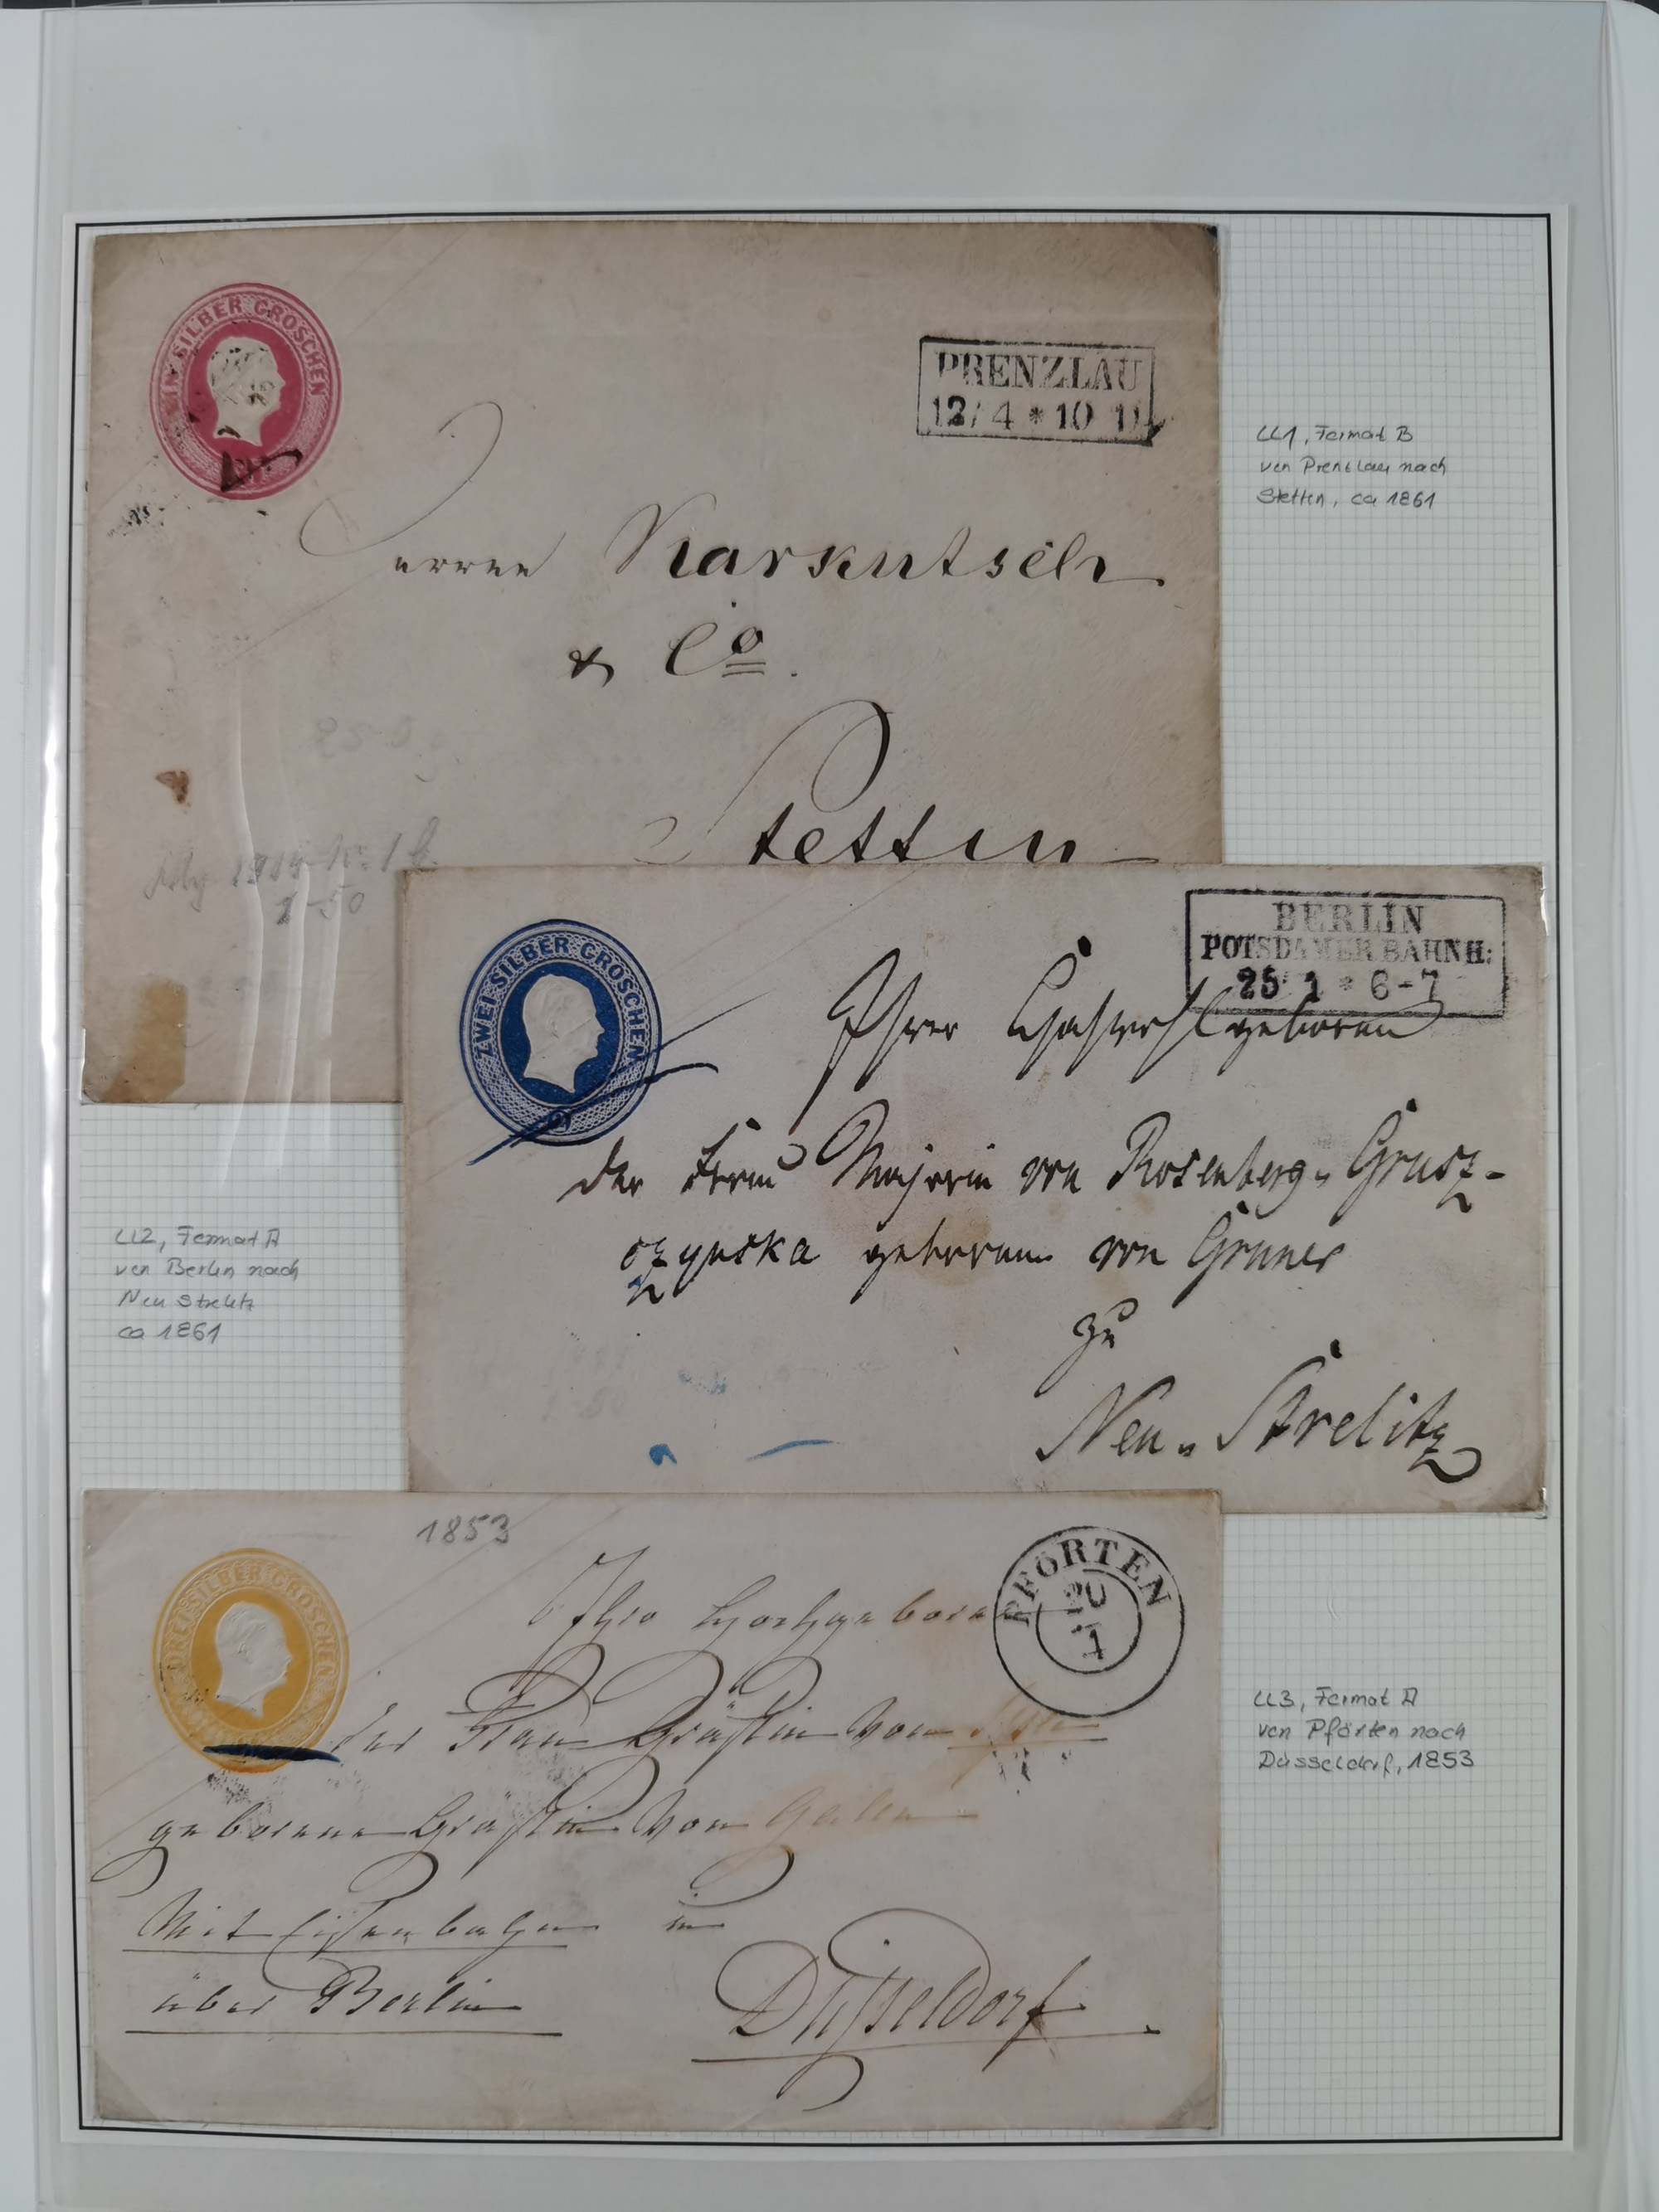 EIN SILBER GROSCHEN
PRENZLAU
12/4 * 10 11
Herren Karkutsch
& Co.
Stettin
Mg 1919 Nr. 1
1-50
U1, Format B
von Prenzlau nach
Stettin, ca 1861
ZWEI SILBER GROSCHEN
2
BERLIN
POTSDAMER BAHNH:
25 1 * 6-7
Ihrer Hochwohlgeboren
der Frau Majorin von Rosenberg-Grusz-
czynska geborene von Gruner
zu
Neu-Strelitz
U2, Format A
von Berlin nach
Neu Strelitz
ca 1861
1853
DREI SILBER GROSCHEN
PFÖRTEN
20
1
Ihro Hochgeboren
der Frau Gräfin von
geborene Gräfin von
Mit Eisenbahn in
über Berlin
Düsseldorf
U3, Format A
von Pförten nach
Düsseldorf, 1853